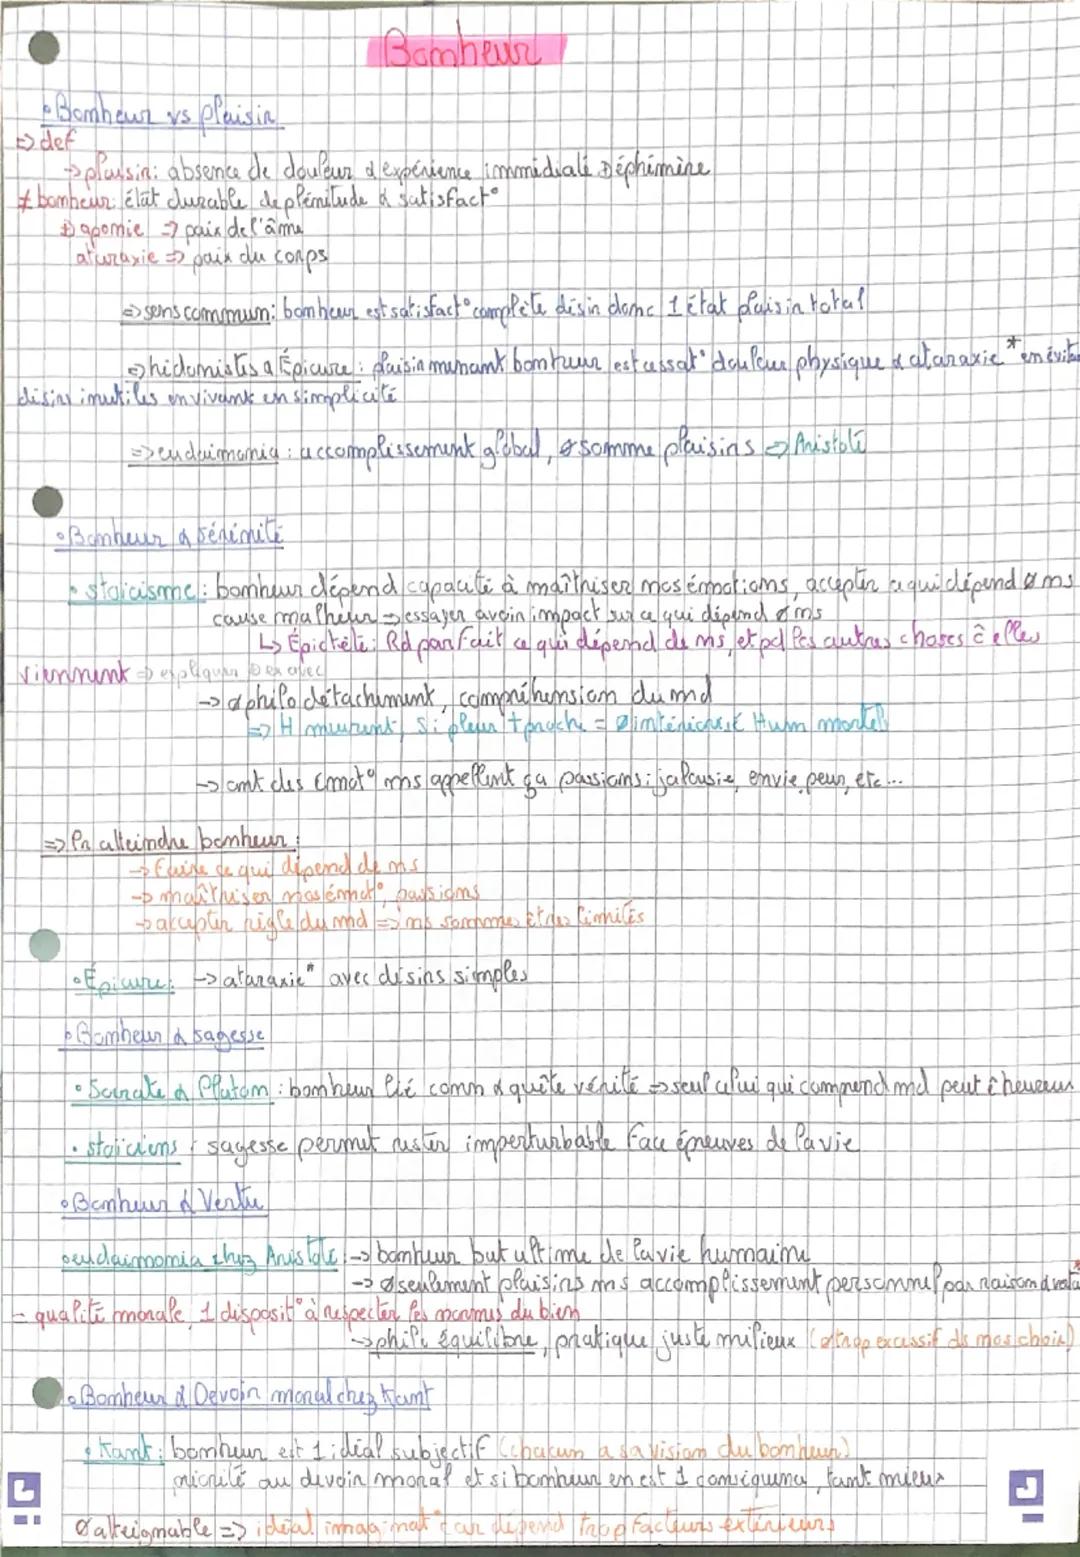 Bonheur
• Bonheur vs plaisir
⇒ def
→ plaisir: absence de douleur & expérience immédiate éphémère
≠ bonheur: état durable de plénitude & satisfact°
aponie ⇒ paix de l'âme
ataraxie ⇒ paix du corps
⇒ sens commun: bonheur est satisfact° complète désir donc 1 état plaisir total
⇒ hédonistes Épicure: plaisir menant bonheur est cessat° douleur physique & ataraxie * en évitan
désirs inutiles en vivant en simplicité
⇒ eudaimonia: accomplissement global, ≠ somme plaisirs ⇒ Aristote
• Bonheur & sérénité
• stoïcisme: bonheur dépend capacité à maîthriser nos émotions, accepter ce qui dépend Ø ms
cause malheur ⇒ essayer avoir impact sur ce qui dépend Ø ms
↳ Épictète: Rd parfait ce qui dépend de ms, et pd les autres choses ê elles
viennent ⇒ expliquer ex avec
→ philo détachement, compréhension du md
⇒ H meurent, si pleur + proche = Ø intériorisé Hum mortel
→ ont des émot° ms appellent ça passions: jalousie, envie, peur, etc...
⇒ Pr atteindre bonheur:
→ Faire ce qui dépend de ms
→ maîthriser nos émot°, passions
→ accepter règle du md ⇒ ms sommes êtres limités
• Épicure: → ataraxie* avec désirs simples
• Bonheur & sagesse
• Socrate & Platon: bonheur lié conn & quête vérité ⇒ seul celui qui comprend md peut ê heureux
• stoïciens: sagesse permet rester imperturbable face épreuves de la vie
• Bonheur & Vertu
eudaimonia chez Aristote: → bonheur but ultime de la vie humaine
→ Ø seulement plaisirs ms accomplissement personnel par raison & vertu*
- qualité morale, 1 disposit° à respecter les normes du bien
→ philo équilibre, pratique juste milieux (Ø trop excessif ds nos choix)
• Bonheur & Devoir moral chez Kant
• Kant: bonheur est 1 idéal subjectif (chacun a sa vision du bonheur)
priorité au devoir moral et si bonheur en est 1 conséquence, tant mieux
Ø atteignable ⇒ idéal imaginat° car dépend trop facteurs extérieurs